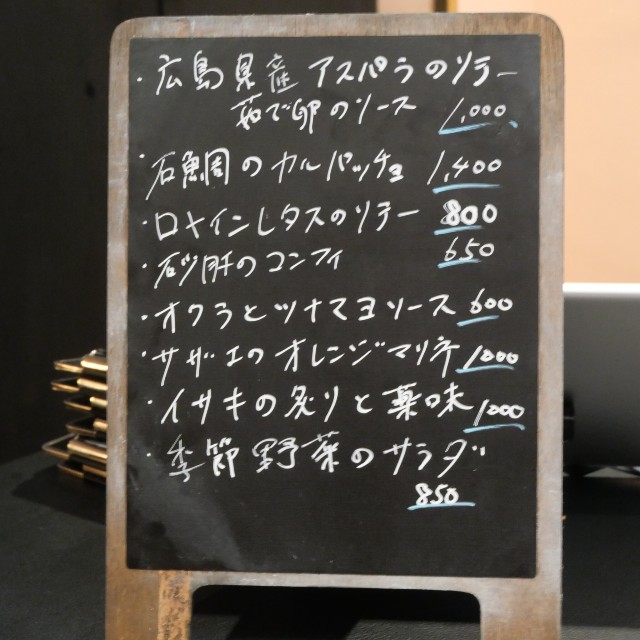 ・広島県産アスパラのソテー
茹で卵のソース 1,000
・石鯛のカルパッチョ 1,400
・ロメインレタスのソテー 800
・砂肝のコンフィ 650
・オクラとツナマヨソース 600
・サザエのオレンジマリネ 1000
・イサキの炙りと薬味 1000
・季節野菜のサラダ
850